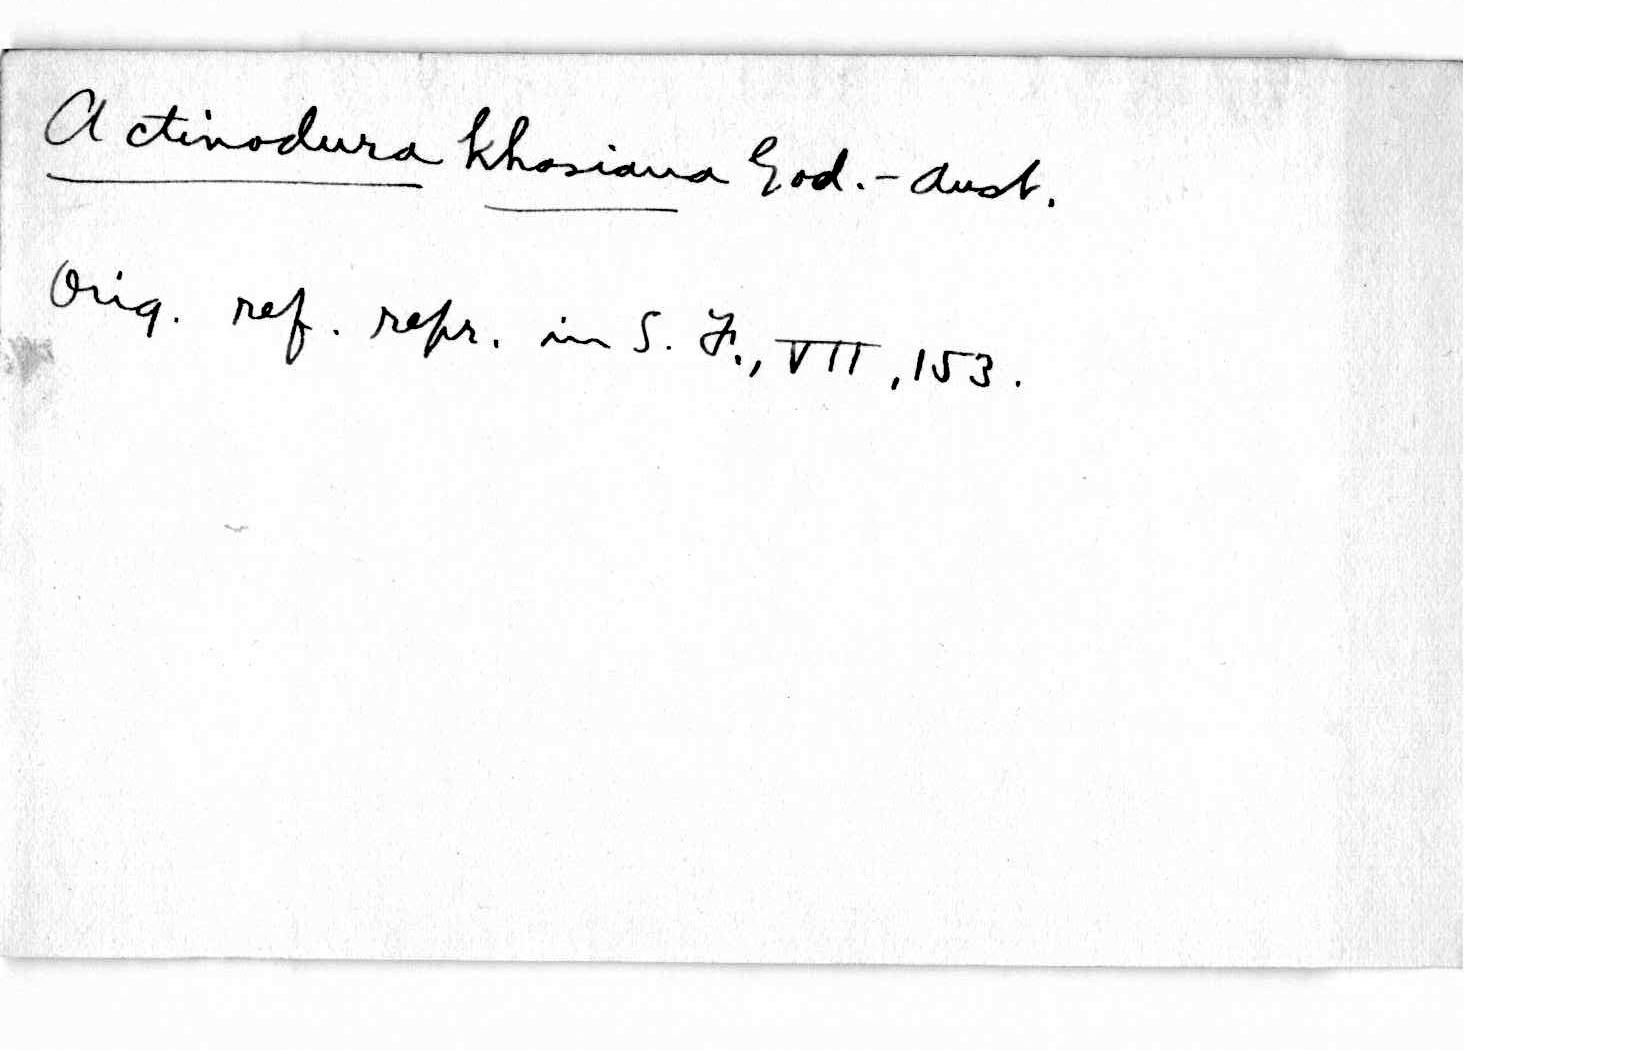 Actinodura khasiana God.-Aust.
Orig. ref. repr. in S. F., VII, 153.